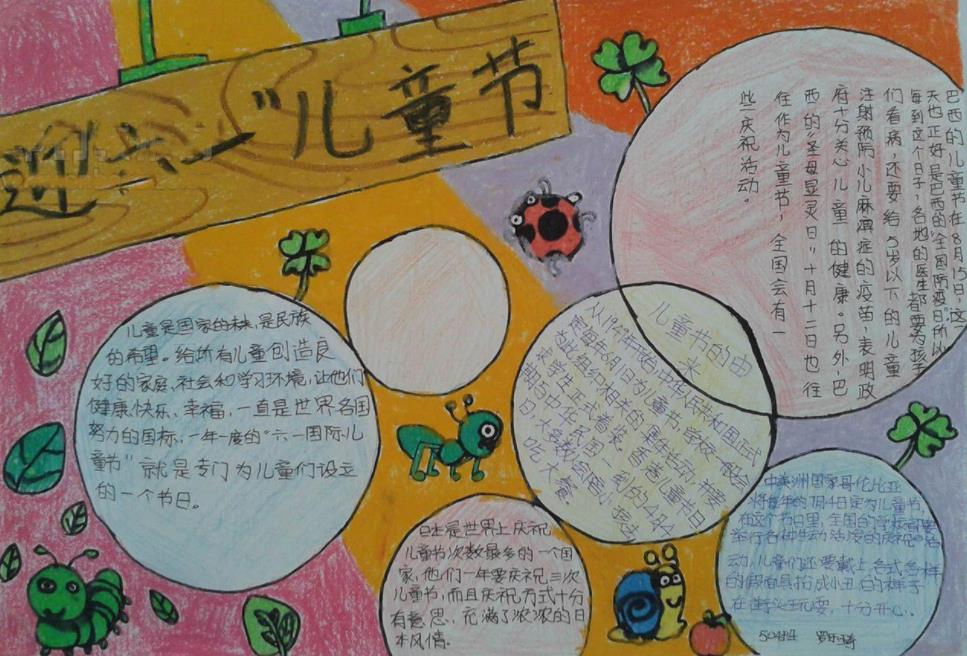 迎六一"儿童节
巴西的儿童节在8月15日,这
天也正好是巴西的"全国防疫日"所以
每到这个日子,各地的医生都要为孩子
们看病,还要给5岁以下的儿童
注射预防小儿麻痹症的疫苗,表明政
府十分关心儿童的健康。另外,巴
西的"圣母显灵日"十月十二日也往
往作为儿童节,全国会有一
些庆祝活动。
儿童是国家的未来,是民族
的希望。给所有儿童创造良
好的家庭、社会和学习环境,让他们
健康、快乐、幸福,一直是世界各国
努力的国标,一年一度的"六一国际儿
童节"就是专门为儿童们设立
的一个节日。
儿童节的由
来
从1949年开始,中华人民共和国正式
定每年6月1日为儿童节,学校一般会
为此组织相关的集体活动,并要
求学生正式着装,香港儿童节日
期与中华民国一到的4月4
日,大多数会陪
吃大餐
日本是世界上庆祝
儿童节次数最多的一个国
家,他们一年要庆祝三次
儿童节,而且庆祝方式十分
有意思,充满了浓浓的日
本风情。
中美洲国家哥伦比亚
将每年的7月4日定为儿童节,
在这个节日里,全国的学校都要
举行各种生动活泼的庆祝活
动,儿童们还要戴上各式各样
的假面具扮成小丑的样子
在街头玩耍,十分开心。